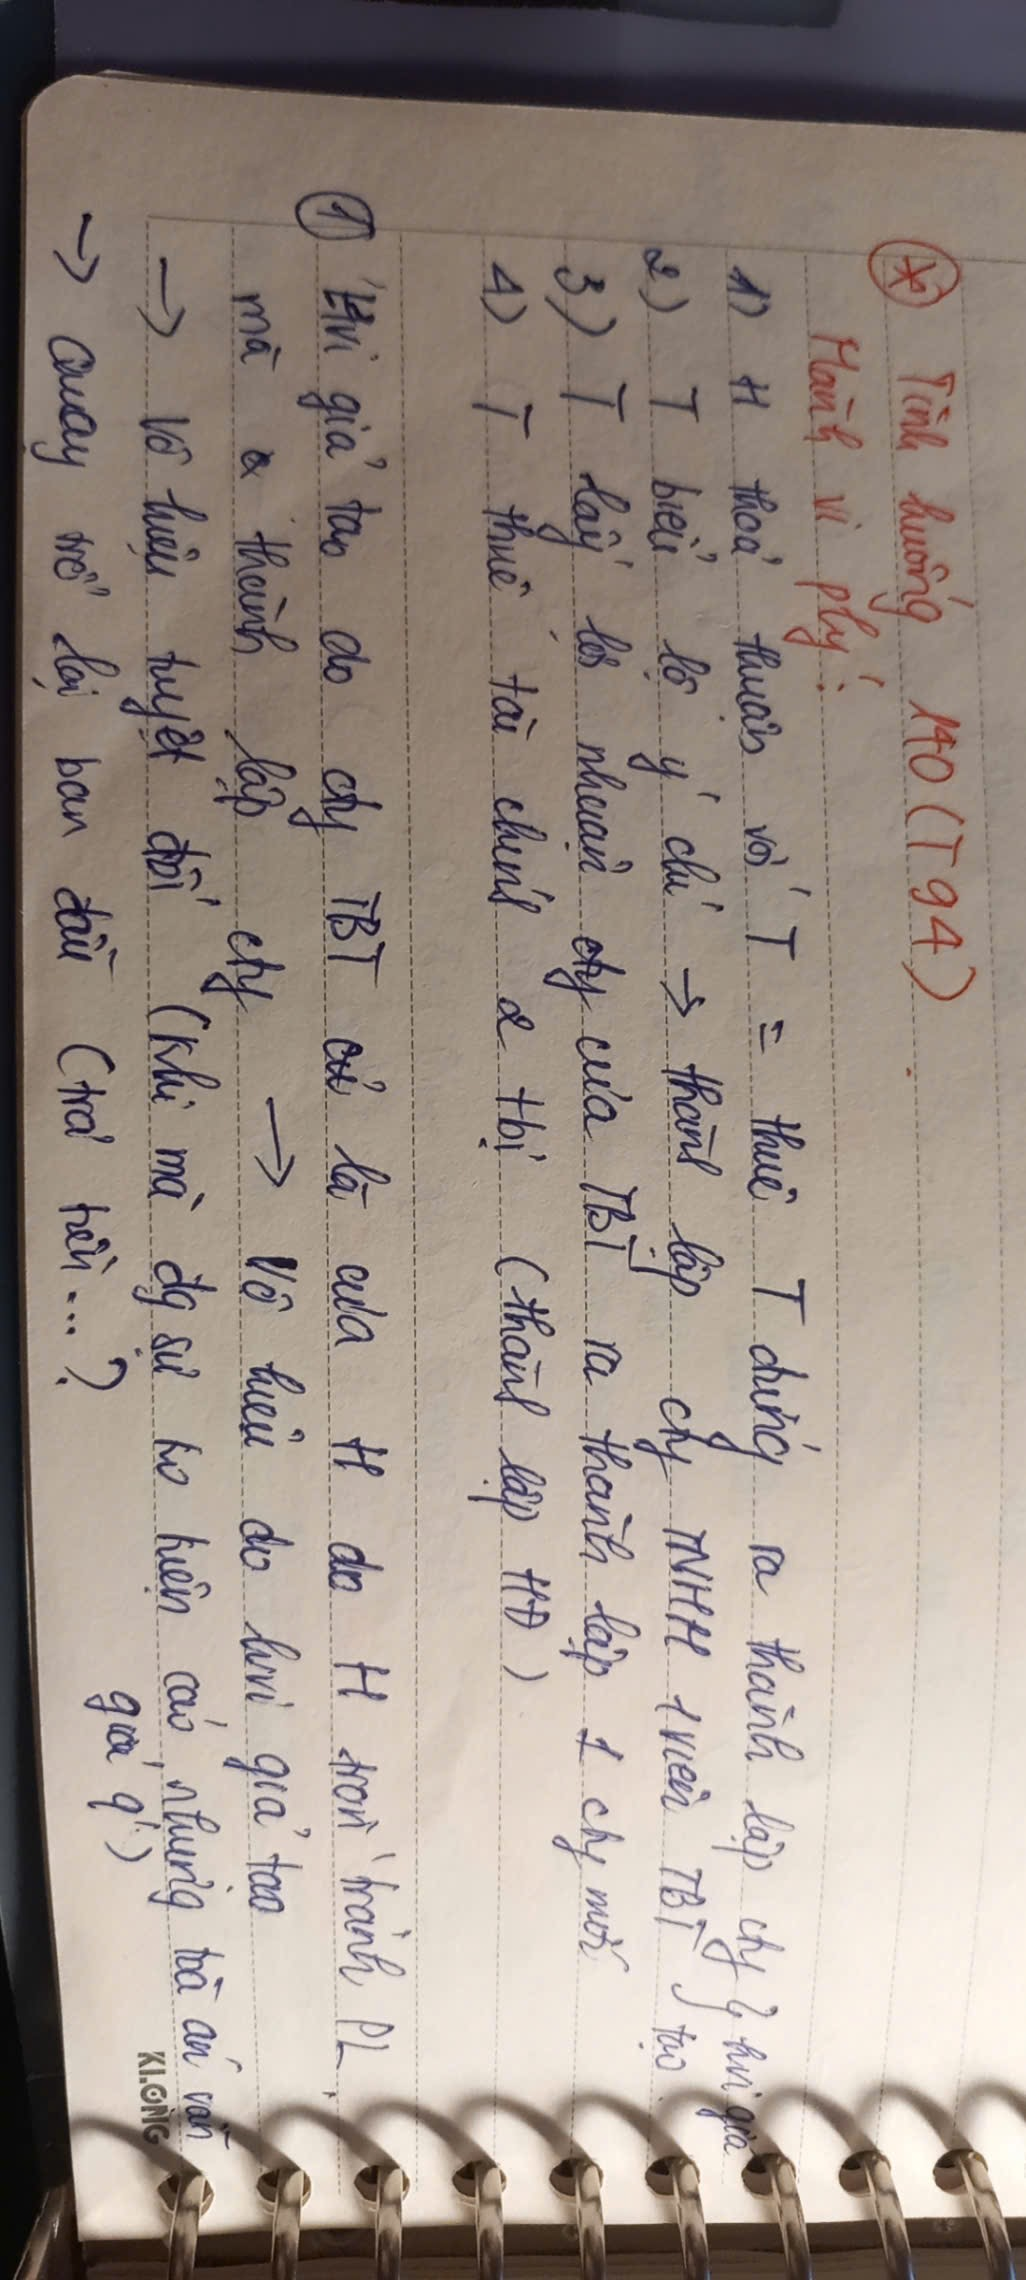 * Tình huống 140 (T94)
Hành vi plý:
1) H thoả thuận vs T = thuê T đứng ra thành lập cty } hvi giả
2) T biểu lộ ý chí → thành lập cty TNHH 1 viên TBT } tạo
3) T lấy lợi nhuận cty của TBT ra thành lập 1 cty mới
4) T thuê tài chính 2 tbị (thành lập HĐ)
① Hvi giả tạo do cty TBT là của H do H trốn tránh PL
mà thành lập cty → Vô hiệu do hvi giả tạo
→ Vô hiệu tuyệt đối (khi mà đg sự ko kiện cáo, nhưng toà án vẫn
gqá q')
→ Quay trở lại ban đầu (trả tiền...?)
KLONG